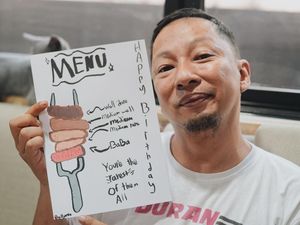 MENU
Well done
medium well
medium
medium rare
BaBa
You're the
rarest
Of them
All
HAPPY Birthday
DURAN